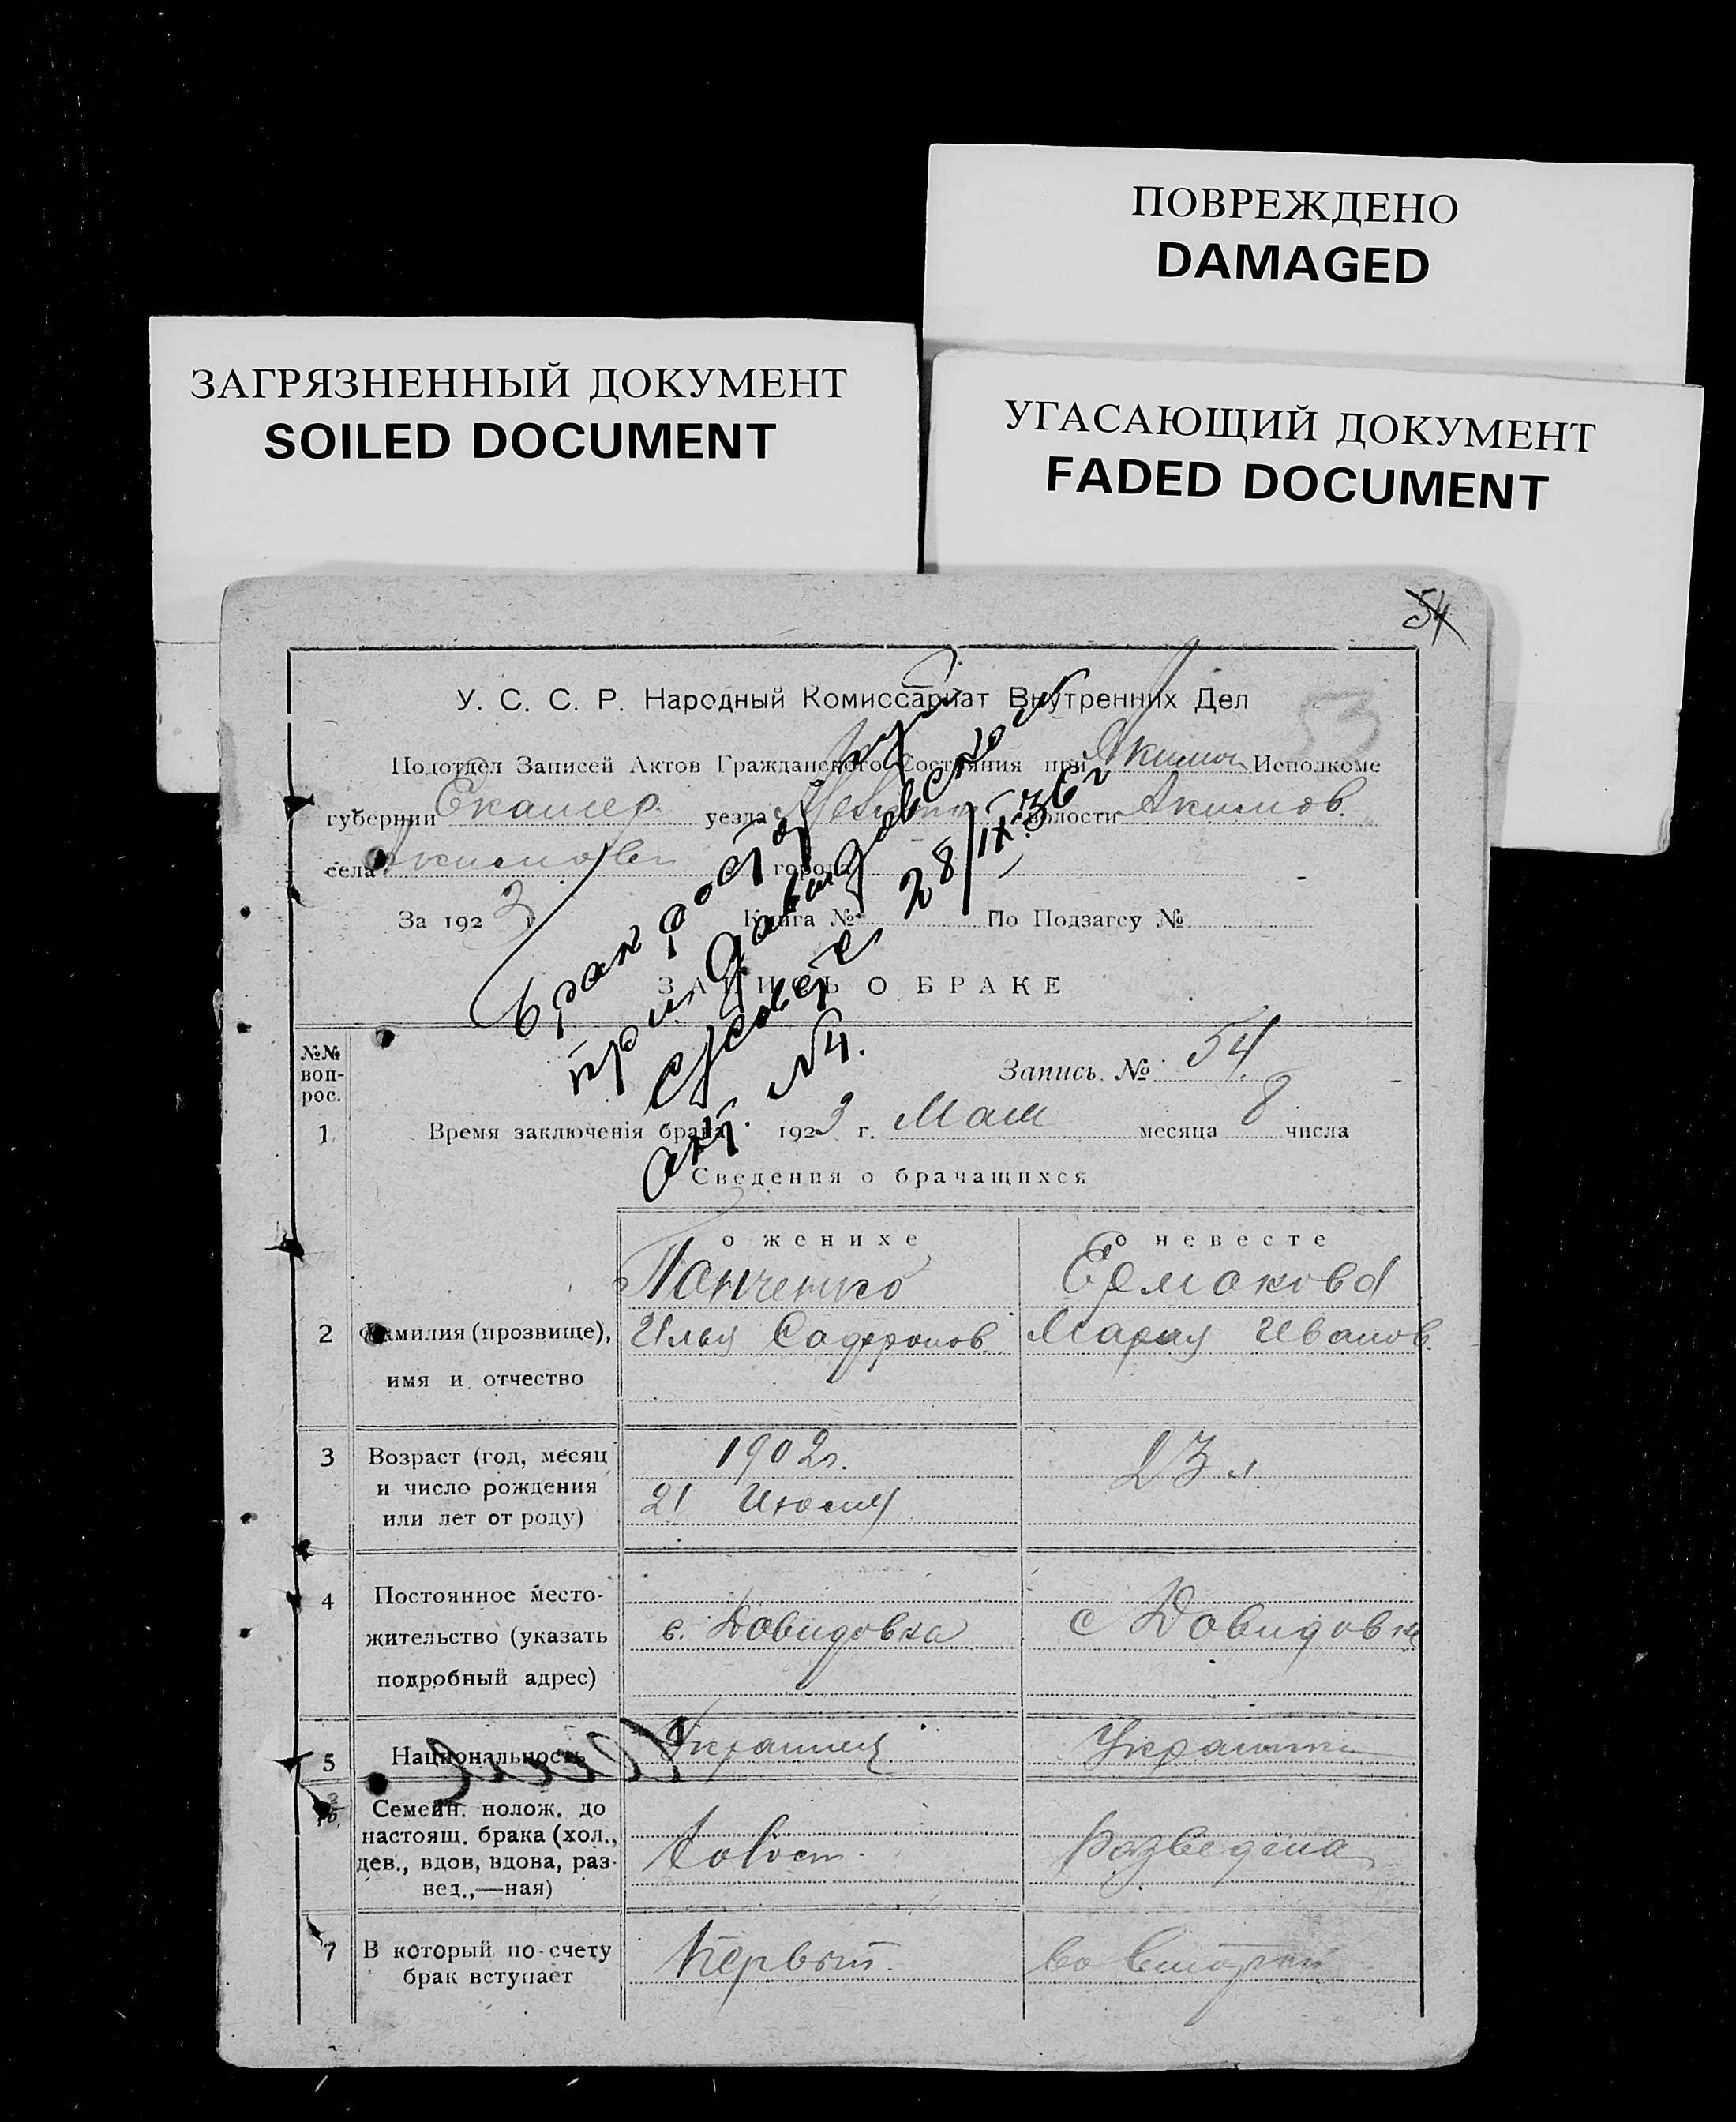 ПОВРЕЖДЕНО
DAMAGED
ЗАГРЯЗНЕННЫЙ ДОКУМЕНТ
SOILED DOCUMENT
УГАСАЮЩИЙ ДОКУМЕНТ
FADED DOCUMENT
54
53
У. С. С. Р. Народный Комиссариат Внутренних Дел
Подотдел Записей Актов Гражданского Состояния при Акимов Исполкоме
губернии Екатер. уезда волости Акимов.
села Акимовки города
За 1923 Книга № По Подзагсу №
ЗАПИСЬ О БРАКЕ
брак расторгнут
при Давидовском
с/совете 28/IX-36 г
акт. №4.
№№ воп- рос.
Запись № 54.
1 Время заключенія брака 1923 г. Мая месяца 8 числа
Сведения о брачащихся
о женихе о невесте
Панченко Ермакова
2 Фамилия (прозвище), Илья Софронов. Мария Иванов.
имя и отчество
3 Возраст (год, месяц 1902г. 23 л
и число рождения 21 Июля
или лет от роду)
4 Постоянное место-
жительство (указать с. Давидовка с Давидовка
подробный адрес)
5 Национальность Украинец Украинка
Семейн. полож. до
настоящ. брака (хол., Холост. Разведена
дев., вдов, вдова, раз-
вед.,—ная)
7 В который по счету Первый. во второй
брак вступает